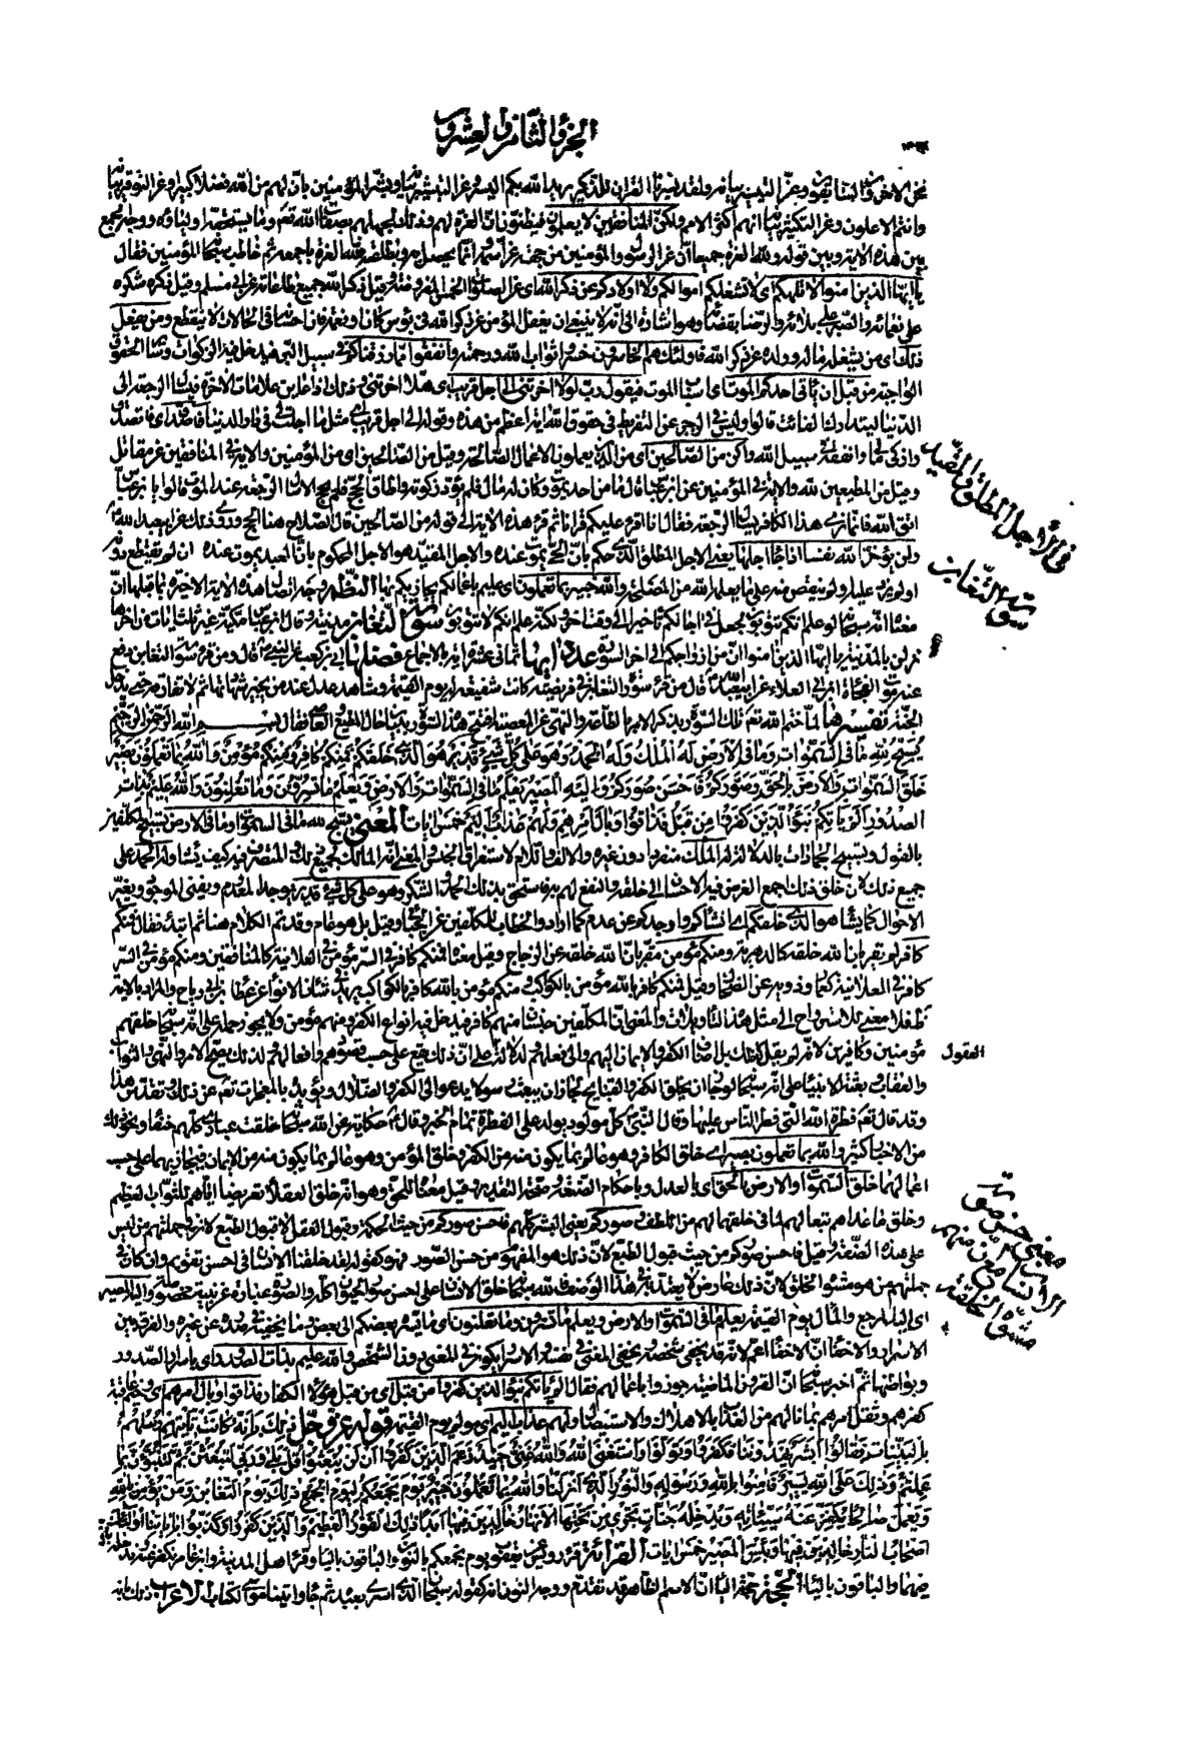 الجزؤ الثامن والعشرون
نحن الاخرون السابقون وعن التيسير بيانه ولقد يسرنا القران للذكر يريد الله بكم اليسر وعن التبشير بيانه وبشر المؤمنين بان لهم من الله فضلا كبيرا وعن التوقير بيانه
وانتم الاعلون وعن التكثير بيانه انهم اكثر الامم ولكن المنافقين لا يعلمون فيظنون ان العزة لهم وذلك لجهلهم بصفات الله تعالى وما يستحقه اولياؤه ووجه الجمع
بين هذه الاية وبين قوله ولله العزة جميعا ان عز الرسول والمؤمنين من جهته عز اسمه وانما يحصل به وبطاعته فلله العزة باجمعها ثم خاطب سبحانه المؤمنين فقال
يا ايها الذين امنوا لا تلهكم اى لا تشغلكم اموالكم ولا اولادكم عن ذكر الله اى عن الصلوات الخمس المفروضة وقيل ذكر الله جميع طاعاته عن ابي مسلم وقيل ذكره شكره
على نعمائه والصبر على بلائه والرضا بقضائه وهو اشارة الى انه لا ينبغي ان يغفل المؤمن عن ذكر الله في بؤس كان او نعمة فان احسانه في الحالات لا ينقطع ومن يفعل
ذلك اى من يشغله ماله وولده عن ذكر الله فاولئك هم الخاسرون خسروا ثواب الله ورحمته وانفقوا مما رزقناكم في سبيل البر فيدخل فيه الزكوات وسائر الحقوق
الواجبة من قبل ان ياتى احدكم الموت اى اسباب الموت فيقول رب لولا اخرتنى الى اجل قريب اى هلا اخرتنى وذلك اذا عاين علامات الاخرة فيسأل الرجعة الى
الدنيا ليتدارك الفائت قالوا وليس في الزجر عن التفريط في حقوق الله اية اعظم من هذه وقوله الى اجل قريب اى مثل ما اجلت لى في دار الدنيا فاصدق اى فاتصدق
وازكى مالى وانفقه في سبيل الله واكن من الصالحين اى من الذين يعملون الاعمال الصالحة وقيل من الصالحين اى من المؤمنين والاية في المنافقين عن مقاتل
وقيل من المطيعين لله والاية في المؤمنين عن ابن عباس قال ما من احد يموت وكان له مال فلم يؤد زكوته واطاق الحج فلم يحج الا سال الرجعة عند الموت قالوا يا بن عباس
اتق الله فانما نرى هذا الكافر يسال الرجعة فقال انا اقرء عليكم قرانا ثم قرء هذه الاية الى قوله من الصالحين قال الصلاح هنا الحج وروى ذلك عن ابى عبد الله
ولن يؤخر الله نفسا اذا جاء اجلها يعنى الاجل المطلق الذى حكم بان الحي يموت عنده والاجل المقيد هو الاجل المحكوم بان العبد يموت عنده ان لم يقتطع دونه
او لم يزد عليه او لم ينقص منه على ما يعلمه الله من المصلحة والله خبير بما تعملون اى عليم باعمالكم يجازيكم بها النظم وجه اتصال هذه الاية الاخيرة بما قبلها ان
معناه انه سبحانه لو علم انكم تتوبون لجعل في اجالكم تاخيرا الى وقت اخر لكنه علم انكم لا تتوبون سورة التغابن مدنية وقال ابن عباس مكية غير ثلث ايات من اخرها
نزلن بالمدينة يا ايها الذين امنوا ان من ازواجكم الى اخر السورة عدد ايها ثمانى عشرة اية بالاجماع فضلها ابى بن كعب عن النبي قال ومن قرء سورة التغابن دفع
عنه موت الفجأة ابن ابى العلاء عن ابى عبد الله قال من قرء سورة التغابن في فريضته كانت شفيعة له يوم القيمة وشاهد عدل عند من يجيز شهادتها ثم لا تفارقه حتى يدخل
الجنة تفسيرها لما ختم الله تعالى تلك السورة بذكر الامر بالطاعة والنهى عن المعصية افتتح هذه السورة ببيان حال المطيع والعاصى فقال بسم الله الرحمن الرحيم
يُسَبِّحُ لِلّهِ مَا فِى السَّمٰوَاتِ وَمَا فِى الْأَرْضِ لَهُ الْمُلْكُ وَلَهُ الْحَمْدُ وَهُوَ عَلَى كُلِّ شَىْءٍ قَدِيرٌ هُوَ الَّذِى خَلَقَكُمْ فَمِنْكُمْ كَافِرٌ وَمِنْكُمْ مُؤْمِنٌ وَاللّهُ بِمَا تَعْمَلُونَ بَصِيرٌ
خَلَقَ السَّمٰوَاتِ وَالْأَرْضَ بِالْحَقِّ وَصَوَّرَكُمْ فَأَحْسَنَ صُوَرَكُمْ وَإِلَيْهِ الْمَصِيرُ يَعْلَمُ مَا فِى السَّمٰوَاتِ وَالْأَرْضِ وَيَعْلَمُ مَا تُسِرُّونَ وَمَا تُعْلِنُونَ وَاللّهُ عَلِيمٌ بِذَاتِ
الصُّدُورِ أَلَمْ يَأْتِكُمْ نَبَؤُا الَّذِينَ كَفَرُوا مِنْ قَبْلُ فَذَاقُوا وَبَالَ أَمْرِهِمْ وَلَهُمْ عَذَابٌ أَلِيمٌ خمس ايات المعنى يسبح لله ما فى السموات وما في الارض تسبيح المكلفين
بالقول وتسبيح الجمادات بالدلالة له الملك منفردا دون غيره والالف واللام لاستغراق الجنس والمعنى انه المالك لجميع ذلك والمتصرف فيه كيف يشاء وله الحمد على
جميع ذلك لان خلق ذلك اجمع الغرض فيه الاحسان الى خلقه والنفع لهم به فاستحق بذلك الحمد والشكر وهو على كل شىء قدير يوجد المعدوم ويفنى الموجود ويغير
الاحوال كما يشاء هو الذى خلقكم اى انشاكم واوجدكم عن عدم كما اراد والخطاب للمكلفين عن الجبائى وقيل بل هو عام وقد تم الكلام هنا ثم ابتدأ فقال فمنكم
كافر لم يقر بان الله خلقه كالدهرية ومنكم مؤمن مقر بان الله خلقه عن الزجاج وقيل معناه فمنكم كافر في السر مؤمن في العلانية كالمنافقين ومنكم مؤمن في السر
كافر في العلانية كعمار وذويه عن الضحاك وقيل فمنكم كافر بالله مؤمن بالكواكب ومنكم مؤمن بالله كافر بالكواكب يريد في شان الانواء عن عطاء بن ابى رباح والمراد بالاية
ظاهرها فلا معنى للاسترواح الى مثل هذه التاويلات والمعنى ان المكلفين جنسان منهم كافر فيدخل فيه انواع الكفر ومنهم مؤمن ولا يجوز حمله على انه سبحانه خلقهم
مؤمنين وكافرين لانه لم يقل كذلك بل اضاف الكفر والايمان اليهم والى فعلهم ولدلالة العقول على ان ذلك يقع على حسب قصودهم وافعالهم ولذلك يصح الامر والنهى والثواب
والعقاب وبعثة الانبياء على انه سبحانه لو جاز ان يخلق الكفر والقبايح لجاز ان يبعث رسولا يدعو الى الكفر والضلال ويؤيده بالمعجزات تعالى عن ذلك وتقدس هذا
وقد قال تعالى فطرة الله التى فطر الناس عليها وقال النبي كل مولود يولد على الفطرة تمام الخبر وقال حكاية عن الله سبحانه خلقت عبادى كلهم حنفاء ونحو ذلك
من الاخبار كثير والله بما تعملون بصير اى خلق الكافر وهو عالم بما يكون منه من الكفر وخلق المؤمن وهو عالم بما يكون منه من الايمان فيجازيهما على حسب
اعمالهما خلق السموات والارض بالحق اى بالعدل وباحكام الصنعة وصحة التقدير وقيل معناه للحق وهو انه خلق العقلاء تعريضا اياهم للثواب العظيم
وخلق ما عداهم تبعا لهم لما في خلقها لهم من اللطف وصوركم يعنى البشر كلهم فاحسن صوركم من حيث الحكمة وقبول العقل لا قبول الطبع لان في جملتهم من ليس
على هذه الصفة وقيل فاحسن صوركم من حيث قبول الطبع لان ذلك هو المفهوم من حسن الصور فهو كقوله لقد خلقنا الانسان في احسن تقويم وان كان في
جملتهم من هو مشوه الخلق لان ذلك عارض لا يعتد به في هذا الوصف فالله سبحانه خلق الانسان على احسن صورة الحيوان كله والصورة عبارة عن بنية مخصوصة واليه المصير
اى اليه المرجع والمال يوم القيمة يعلم ما في السموات والارض ويعلم ما تسرون وما تعلنون اى ما يسره بعضكم الى بعض وما يخفيه في صدره عن غيره والفرق بين
الاسرار والاخفاء ان الاخفاء اعم لانه قد يخفى شخصه ويخفى المعنى في نفسه والاسرار يكون في المعنى دون الشخص والله عليم بذات الصدور اى باسرار الصدور
وبواطنها ثم اخبر سبحانه ان القرون الماضية جوزوا باعمالهم فقال الم ياتكم نبؤا الذين كفروا من قبل اى من قبل هؤلاء الكفار فذاقوا وبال امرهم اى وخيم عاقبة
كفرهم وثقل امرهم بما نالهم من العذاب بالاهلاك والاستيصال ولهم عذاب اليم اى مولم يوم القيمة قوله عز وجل ذٰلِكَ بِأَنَّهُ كَانَتْ تَأْتِيهِمْ رُسُلُهُمْ
بِالْبَيِّنَاتِ فَقَالُوا أَبَشَرٌ يَهْدُونَنَا فَكَفَرُوا وَتَوَلَّوْا وَاسْتَغْنَى اللّهُ وَاللّهُ غَنِىٌّ حَمِيدٌ زَعَمَ الَّذِينَ كَفَرُوا أَنْ لَنْ يُبْعَثُوا قُلْ بَلَى وَرَبِّى لَتُبْعَثُنَّ ثُمَّ لَتُنَبَّؤُنَّ بِمَا
عَمِلْتُمْ وَذٰلِكَ عَلَى اللّهِ يَسِيرٌ فَآمِنُوا بِاللّهِ وَرَسُولِهِ وَالنُّورِ الَّذِى أَنْزَلْنَا وَاللّهُ بِمَا تَعْمَلُونَ خَبِيرٌ يَوْمَ يَجْمَعُكُمْ لِيَوْمِ الْجَمْعِ ذٰلِكَ يَوْمُ التَّغَابُنِ وَمَنْ يُؤْمِنْ بِاللّهِ
وَيَعْمَلْ صَالِحًا يُكَفِّرْ عَنْهُ سَيِّئَاتِهِ وَيُدْخِلْهُ جَنَّاتٍ تَجْرِى مِنْ تَحْتِهَا الْأَنْهَارُ خَالِدِينَ فِيهَا أَبَدًا ذٰلِكَ الْفَوْزُ الْعَظِيمُ وَالَّذِينَ كَفَرُوا وَكَذَّبُوا بِآيَاتِنَا أُولٰئِكَ
أَصْحَابُ النَّارِ خَالِدِينَ فِيهَا وَبِئْسَ الْمَصِيرُ خمس ايات القرائة قرء رويس عن يعقوب يوم نجمعكم بالنون والباقون بالياء وقرء اهل المدينة وابن عامر نكفر عنه وندخله بالنون
فيهما والباقون بالياء الحجة حجة الياء ان الاسم الظاهر قد تقدم ووجه النون انه كقوله سبحان الذى اسرى بعبده ثم جاء واتينا موسى الكتاب الاعراب ذلك بانه
في الأجل المطلق والمقيد
سورة التغابن
العقول
معنى حسن صورة
الانسان مع ان منهم
مشوه الخلقة